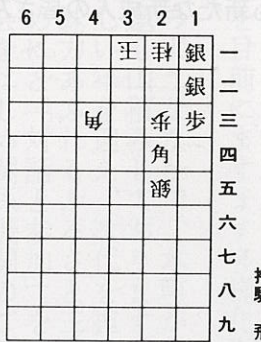 6 5 4 3 2 1
王 桂 銀 一
銀 二
角 歩 歩 三
角 四
銀 五
六
七
八
九